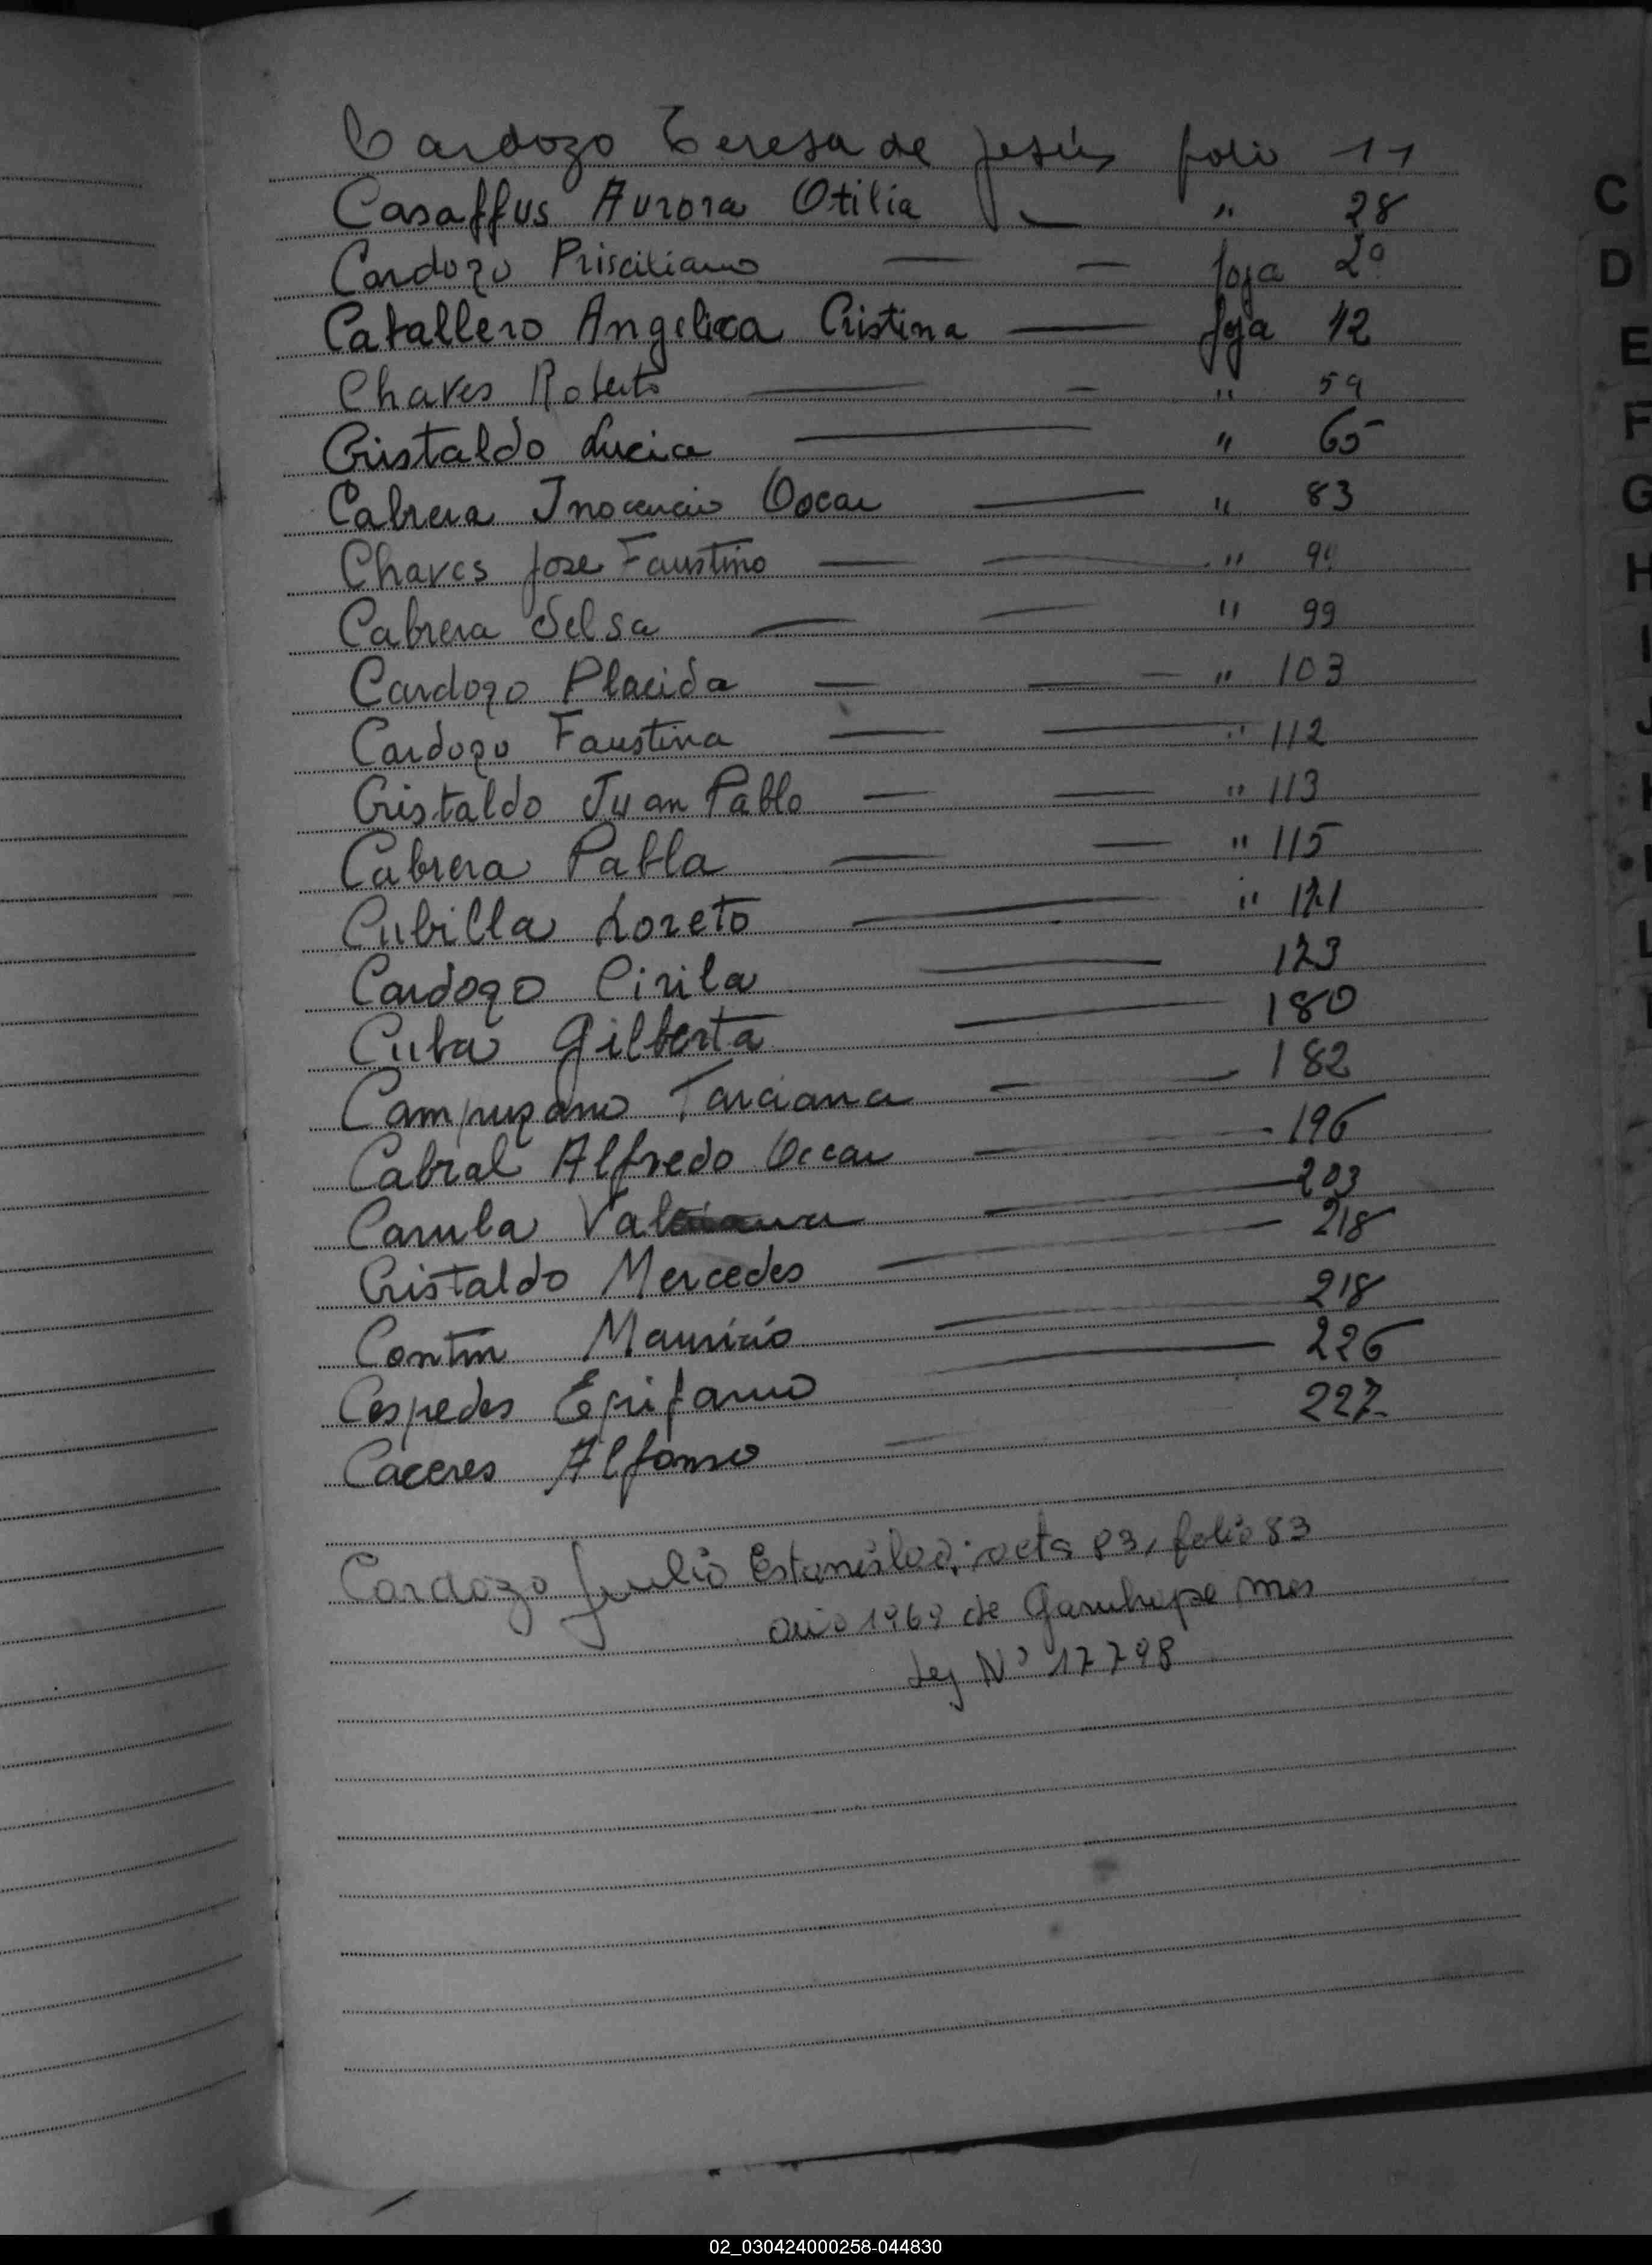 Cardozo Teresa de Jesús folio 11
Casaffus Aurora Otilia — " 28
Cardozo Prisciliano — — foja 29
Caballero Angelica Cristina — foja 42
Chaves Roberto — — " 59
Cristaldo Lucia — " 65
Cabrera Inocencio Oscar — " 83
Chaves Jose Faustino — — "
Cabrera Selsa — — " 99
Cardozo Placida — — — " 103
Cardozo Faustina — — " 112
Cristaldo Juan Pablo — — " 113
Cabrera Pabla — — " 115
Cubilla Loreto — " 121
Cardozo Cirila — 123
Cuba Gilberta — 180
Campuzano Tarciana — — 182
Cabral Alfredo Occar — — 196
Canula — 203
Cristaldo Mercedes — — 218
Contin Mauricio — 218
Cespedes Epifanio — 226
Caceres Alfonso — 227
Cardozo Julio Estanislao; acta 83, folio 83
año 1969 de Garuhape mns
Ley Nº 17798
C
D
E
F
G
H
I
J
K
L
02_030424000258-044830